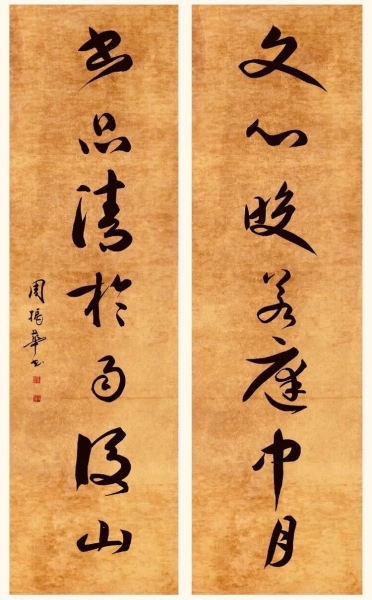 文心皎若庭中月
書品清於雨後山
周振華書